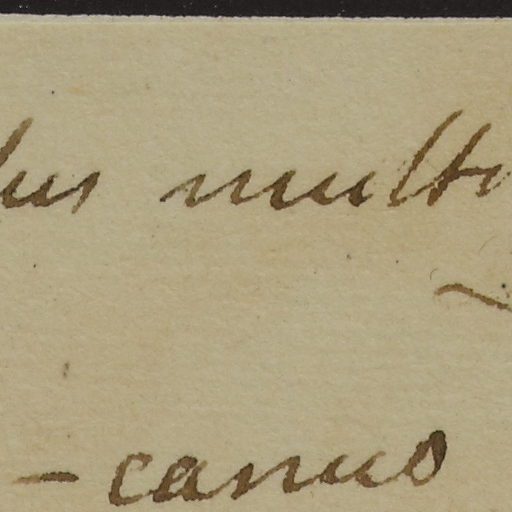 lus multi
- canus